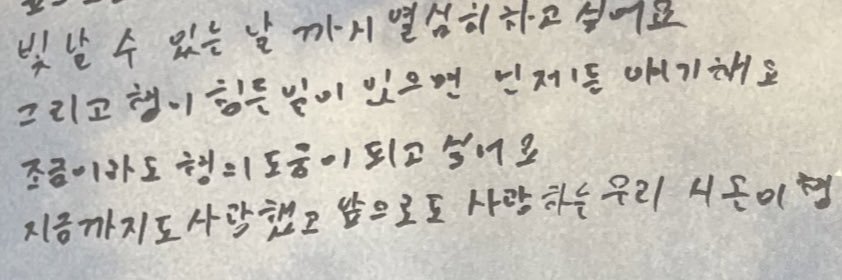 빛날 수 있는 날 까지 열심히 하고 싶어요
그리고 형이 힘든 일이 있으면 언제든 얘기해요
조금이라도 형의 도움이 되고 싶어요
지금까지도 사랑했고 앞으로도 사랑하는 우리 시온이형